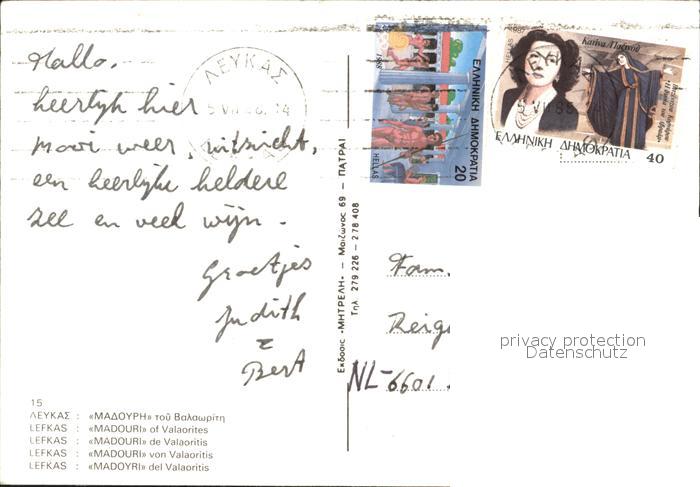 Hallo.
heerlijk hier
mooi weer, uitzicht,
een heerlijke heldere
zee en veel wijn.
Groetjes
Judith
&
Bert
15
ΛΕΥΚΑΣ : «ΜΑΔΟΥΡΗ» τοῦ Βαλαωρίτη
LEFKAS : «MADOURI» of Valaorites
LEFKAS : «MADOURI» de Valaoritis
LEFKAS : «MADOURI» von Valaoritis
LEFKAS : «MADOYRI» del Valaoritis
ΛΕΥΚΑΣ
Εκδοσις «ΜΗΤΡΕΛΗ» — Μαιζωνος 69 — ΠΑΤΡΑΙ
Τηλ 279 226 - 278 408
ΕΛΛΗΝΙΚΗ ΔΗΜΟΚΡΑΤΙΑ
20
HELLAS
1988
Κατίνα Παξινού
ΕΛΛΗΝΙΚΗ ΔΗΜΟΚΡΑΤΙΑ 40
Fam.
Reig
NL-6601
privacy protection
Datenschutz